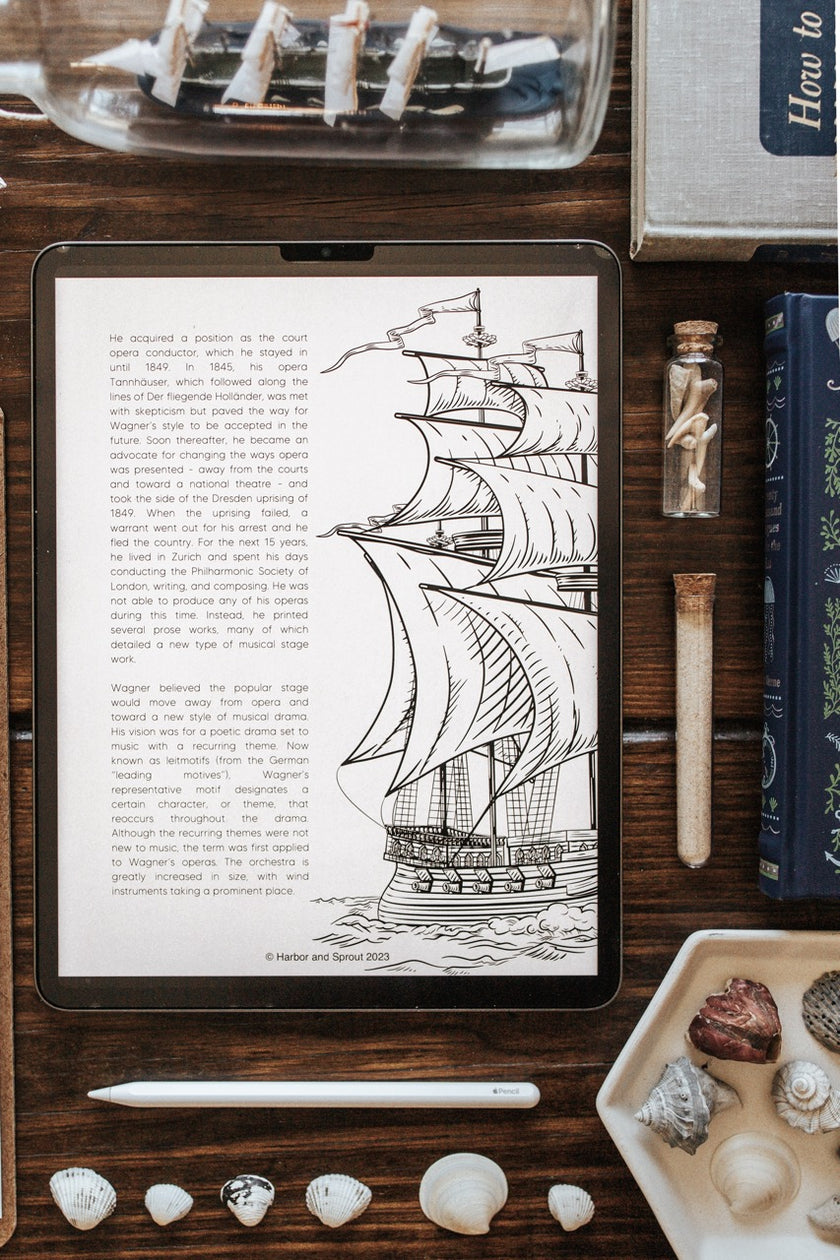 How to
He acquired a position as the court
opera conductor, which he stayed in
until 1849. In 1845, his opera
Tannhäuser, which followed along the
lines of Der fliegende Holländer, was met
with skepticism but paved the way for
Wagner's style to be accepted in the
future. Soon thereafter, he became an
advocate for changing the ways opera
was presented - away from the courts
and toward a national theatre - and
took the side of the Dresden uprising of
1849. When the uprising failed, a
warrant went out for his arrest and he
fled the country. For the next 15 years,
he lived in Zurich and spent his days
conducting the Philharmonic Society of
London, writing, and composing. He was
not able to produce any of his operas
during this time. Instead, he printed
several prose works, many of which
detailed a new type of musical stage
work.
Wagner believed the popular stage
would move away from opera and
toward a new style of musical drama.
His vision was for a poetic drama set to
music with a recurring theme. Now
known as leitmotifs (from the German
"leading motives"), Wagner's
representative motif designates a
certain character, or theme, that
reoccurs throughout the drama.
Although the recurring themes were not
new to music, the term was first applied
to Wagner's operas. The orchestra is
greatly increased in size, with wind
instruments taking a prominent place.
© Harbor and Sprout 2023
Pencil